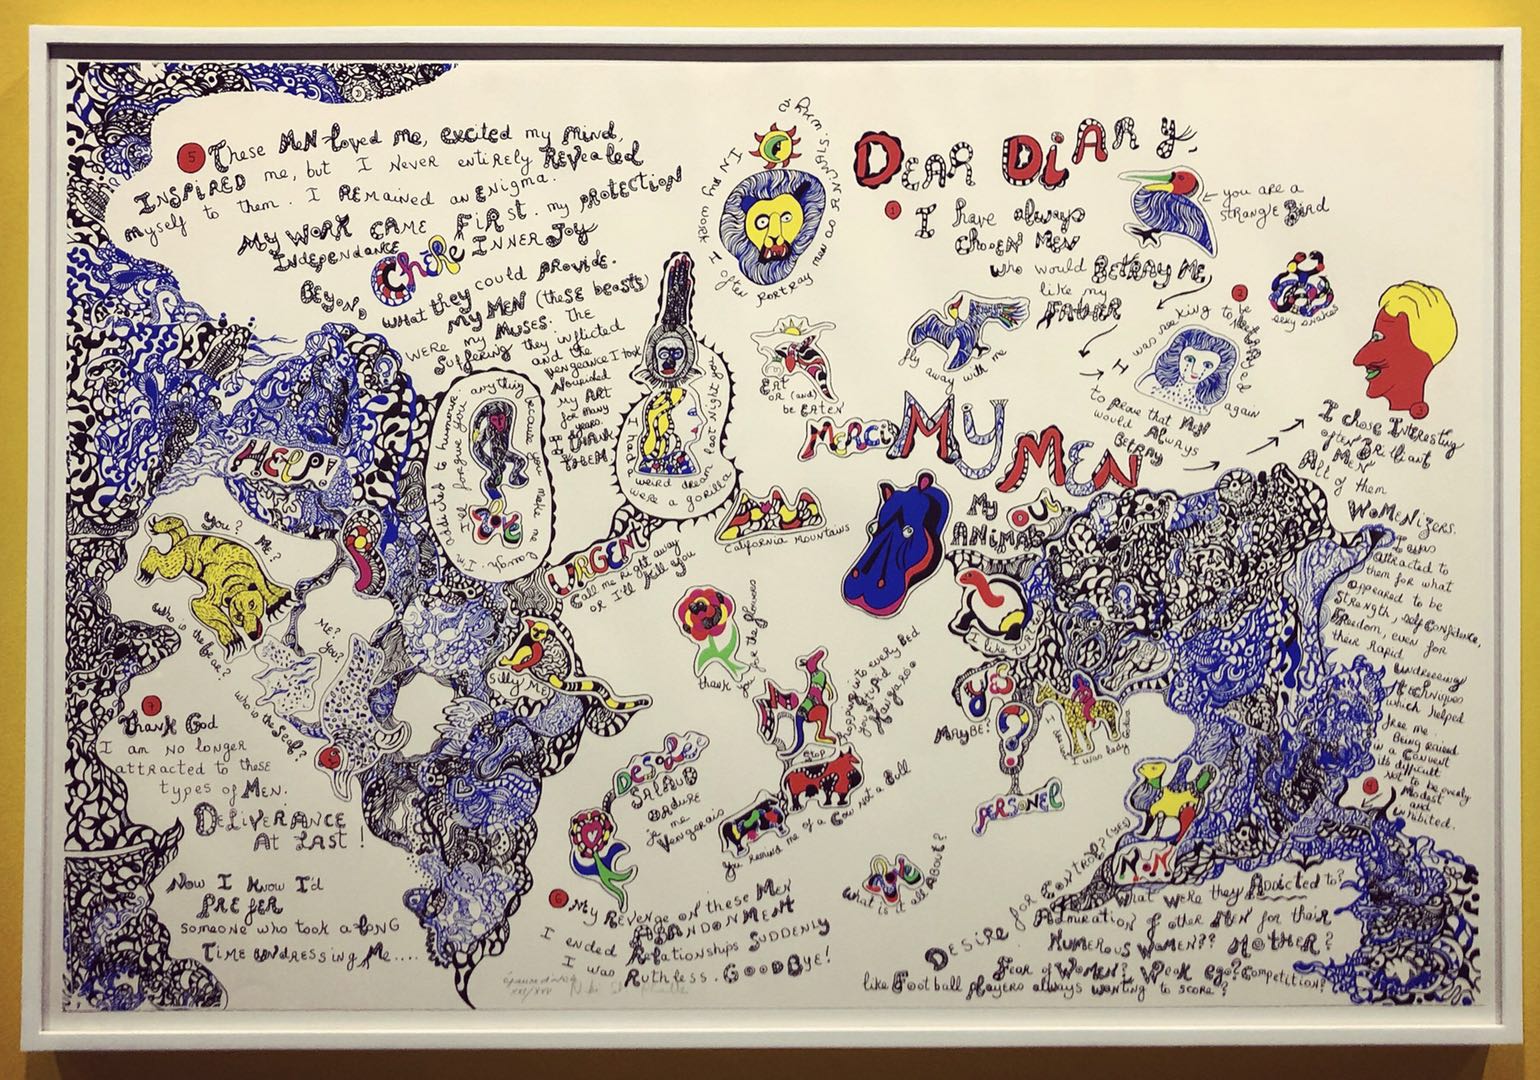 DEAR DiARy,
1
I have always
chosen MEN
who would BETRAY ME
like my
FATHER
you are a
STRANGE Bird
fly away with me
2
I was seeking to be
betrayed
again
to prove that MEN
would Always
BETRAY
sexy snakes
3
I chose Interesting
often BRilliant
MEN
All of them
WOMENIZERS.
I was
attracted to
them for what
appeared to be
Strength, self Confidence,
FReedom, even for
their Rapid
undressing
techniques
which helped
free me.
Being raised
in a Convent
it's difficult
Not to be overly
Modest
and
inhibited.
4
What were they Addicted to?
Desire for Control? (YES)
Admiration of other MEN for their
Numerous Women?? MOTHER?
Fear of Women? Weak ego? Competition?
like Football players always wanting to score?
5
These MEN loved me, excited my mind,
INSPIRED me, but I NEVER entirely REVEALED
myself to them. I REMAINED an ENigma.
MY WORK CAME FIRST. my PROTECTION
INdependANCE
INNER JOY
CHéRe
Beyond what they could provide.
MY MEN (these beasts)
WERE my MUSES. The
Suffering they inflicted
and the
vengeance I took
Nourished
MY ART
for many
years.
I THANK
THEM.
6
My Revenge on these MEN
ABANDONMENT
I ended Relationships SUDDENLY
I was Ruthless. GOODBYE!
7
Thank God
I am no longer
attracted to these
types of MEN.
DELIVERANCE
AT LAST!
Now I know I'd
PREFER
someone who took a LONG
TIME UNDRESSING ME....
IN MY WORK I often PORTRAY men as ANiMALS. Why
EAT
OR (and)
be EATEN
MERCI
MY MEN
MY
OUI
ANIMAL
HELP!
You?
ME?
Who is the bear?
ME?
You?
Who is the Seal?
I'm addicted to humour
I'll forgive you anything because you make me laugh.
LOVE
I had a weird dream last Night you were a gorilla
URGENT
Call me right away
or I'll Kill you
CALIFORNIA MOUNTAINS
silly ME!
thank you for the flowers
hopping into every bed
you stupid
Kangaroo
STOP
You remind me of a Cow not a Bull
DESOLÉE
SALAUD
ORDURE
je me
Vengerais
What is it all About?
I like TURTLES
YES
?
MAYBE?
PERSONEL
I was lady Godiva
NON
épreuve d'artiste
XXI/XXV